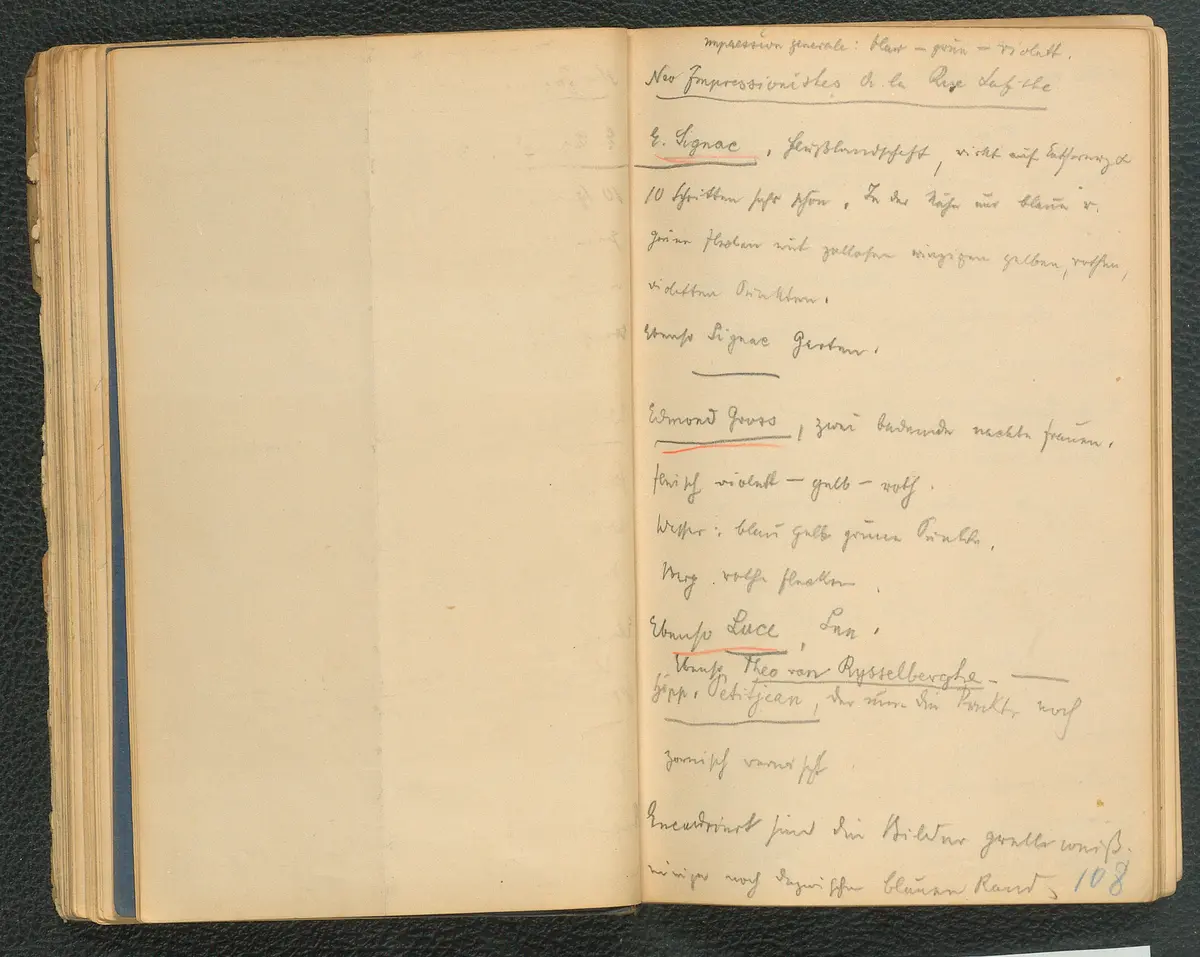 impression generale: blau – grün – violett.
Neo Impressionistes de la Rue Lafitte
E. Signac, Flußlandschaft, wirkt auf Entfernung v
10 Schritten sehr schön. In der Nähe nur blaue u.
grüne Flecken mit zahllosen winzigen gelben, rothen,
violetten Punkten.
Ebenso Signac Garten.
Edmond Gross, zwei badende nackte Frauen.
Fleisch violett – gelb – roth.
Wasser: blau gelb grüne Punkte.
Berg. rothe Flecken.
Ebenso Luce,
Ebenso Theo van Rysselberghe –
Hipp. Petitjean, der nur die Punkte noch
verwischt
Encadriert sind die Bilder grell weiß.
einige noch dazwischen blauen Rand
108